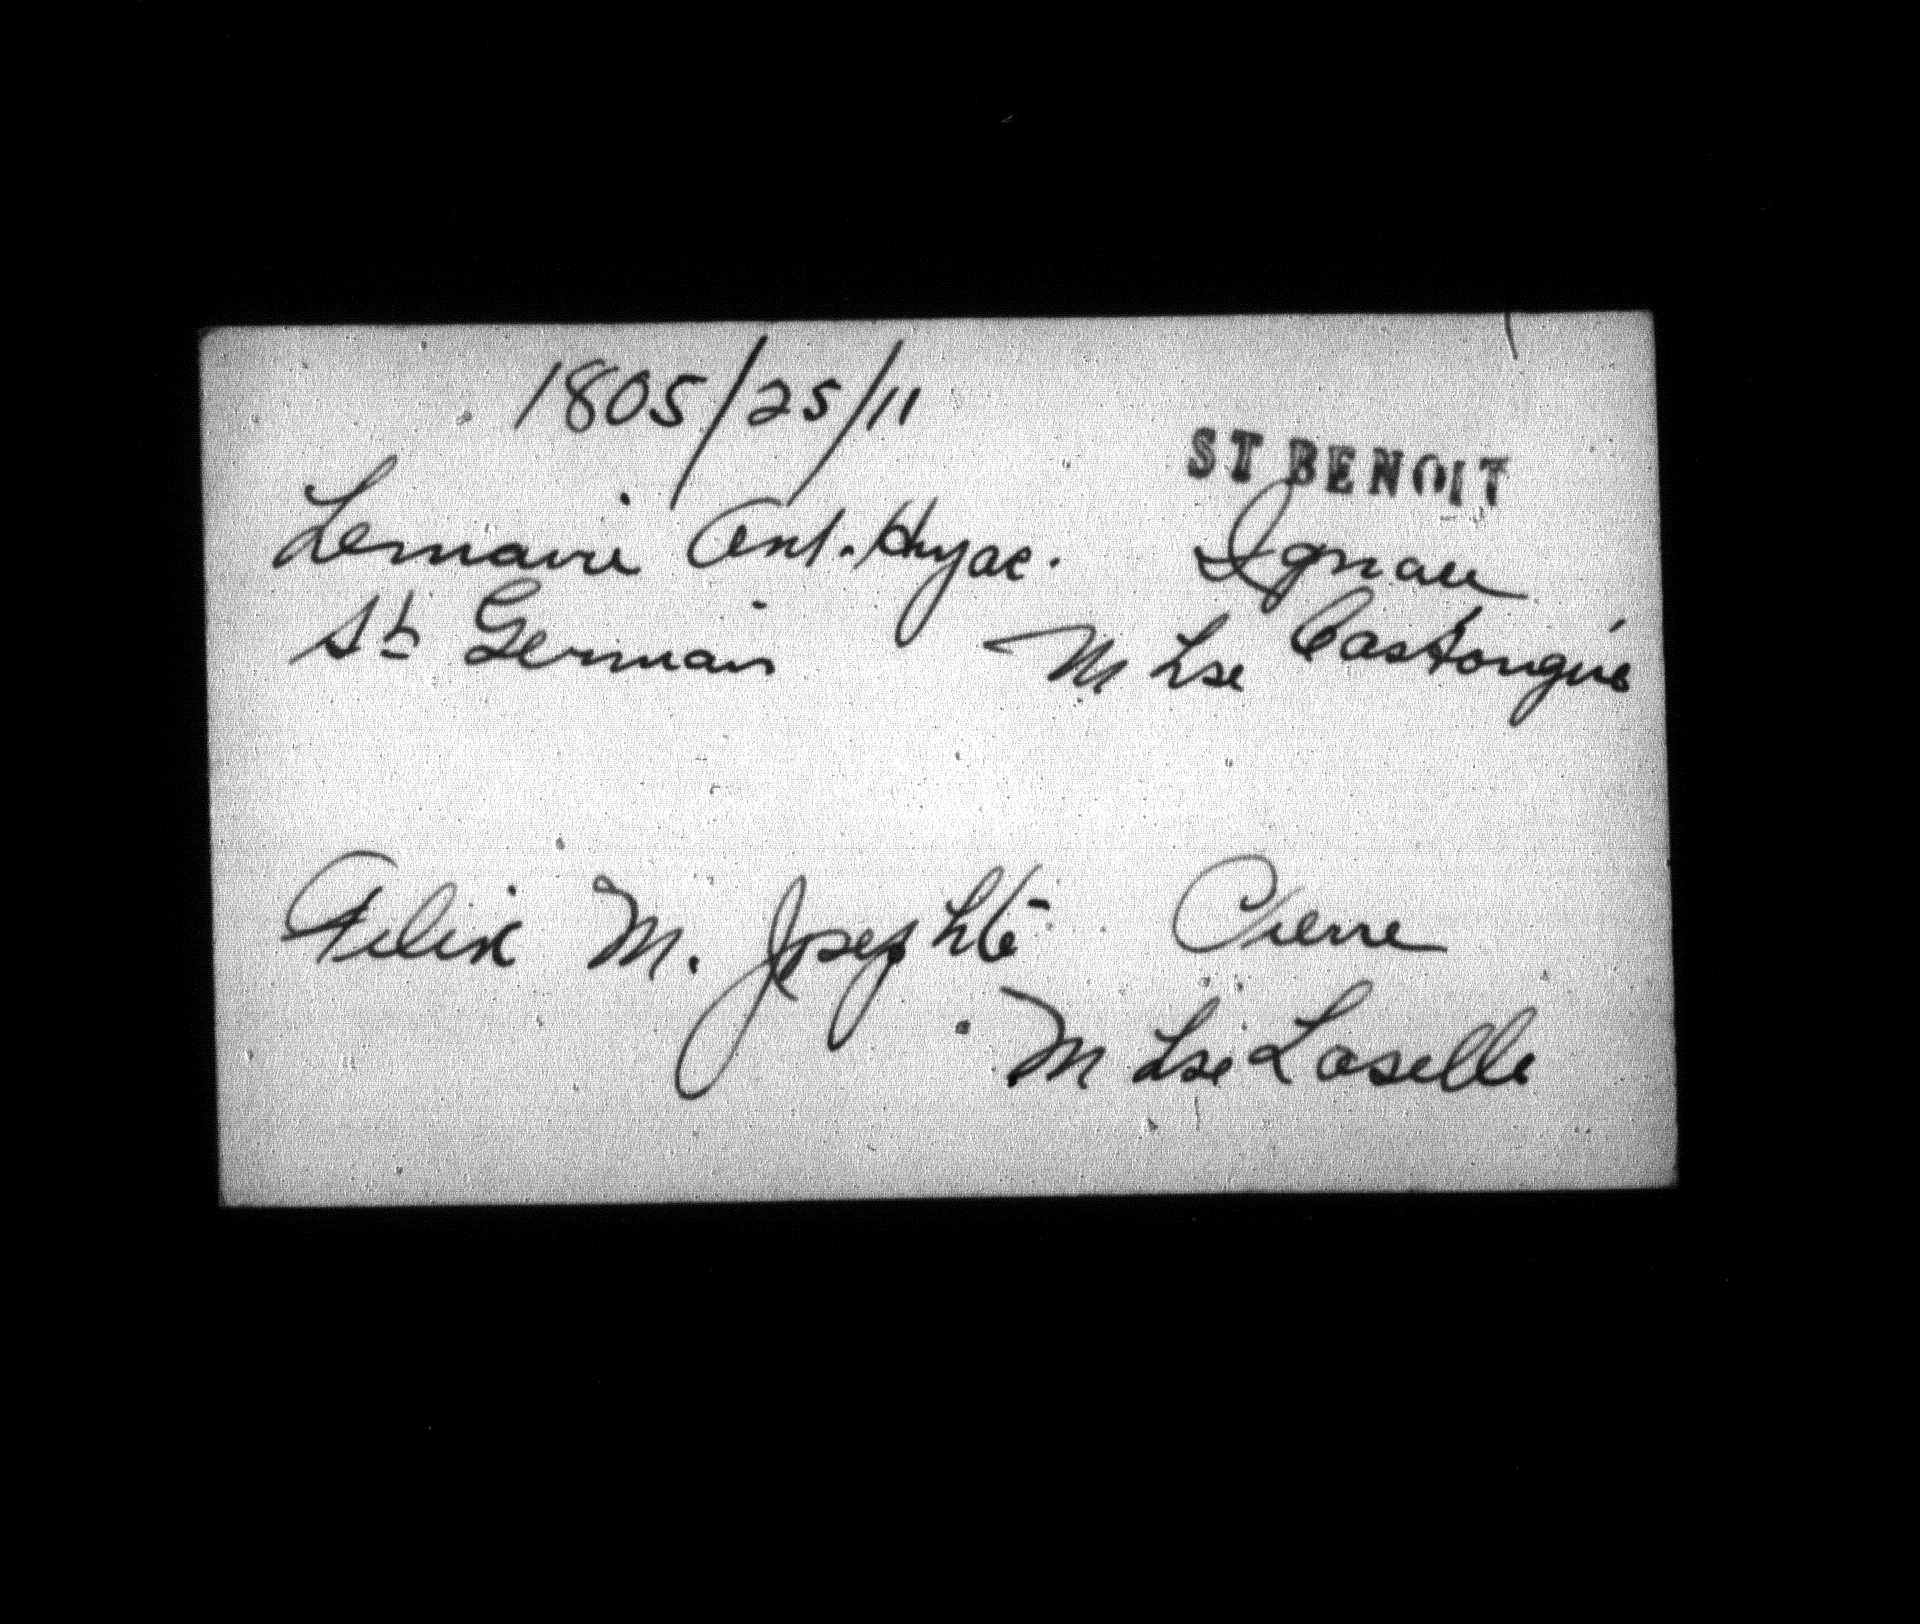 1805/25/11
ST BENOIT
Lemaire Ant. Hyac. Ignace
St Germain M Lse Castongué
Felix M. Josephte Pierre
M Lse Laselle